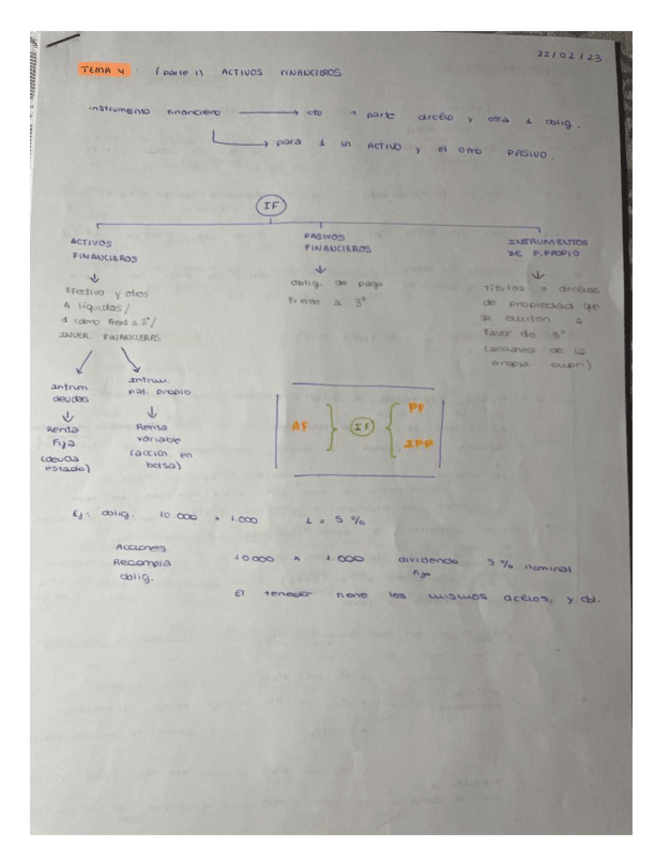 22/02/23
TEMA 4 : (parte 1) ACTIVOS FINANCIEROS
instrumento financiero → cto 1 parte drcho y otra 1 oblig.
para 1 un ACTIVO y el otro PASIVO.
IF
ACTIVOS
FINANCIEROS
Efectivo y otros
A líquidos/
d cobro frent a 3º/
INVER. FINANCIERAS
PASIVOS
FINANCIEROS
Oblig. de pago
frente a 3º
INSTRUMENTOS
DE P. PROPIO
Títulos o drchos
de propiedad que
se emiten a
favor de 3º
(acciones de la
propia empr.)
Intrum.
deudas
Renta
Fija
(deuda
estado)
Intrum.
pat. propio
Renta
variable
(accion. en
bolsa)
AF } IF { PF
IPP
Ej: oblig. 10 000 x 1.000 i = 5 %
Acciones
Recompra
oblig.
10000 x 1.000 dividendo 5 % nominal
fijo
El tenedor tiene los mismos y obl.